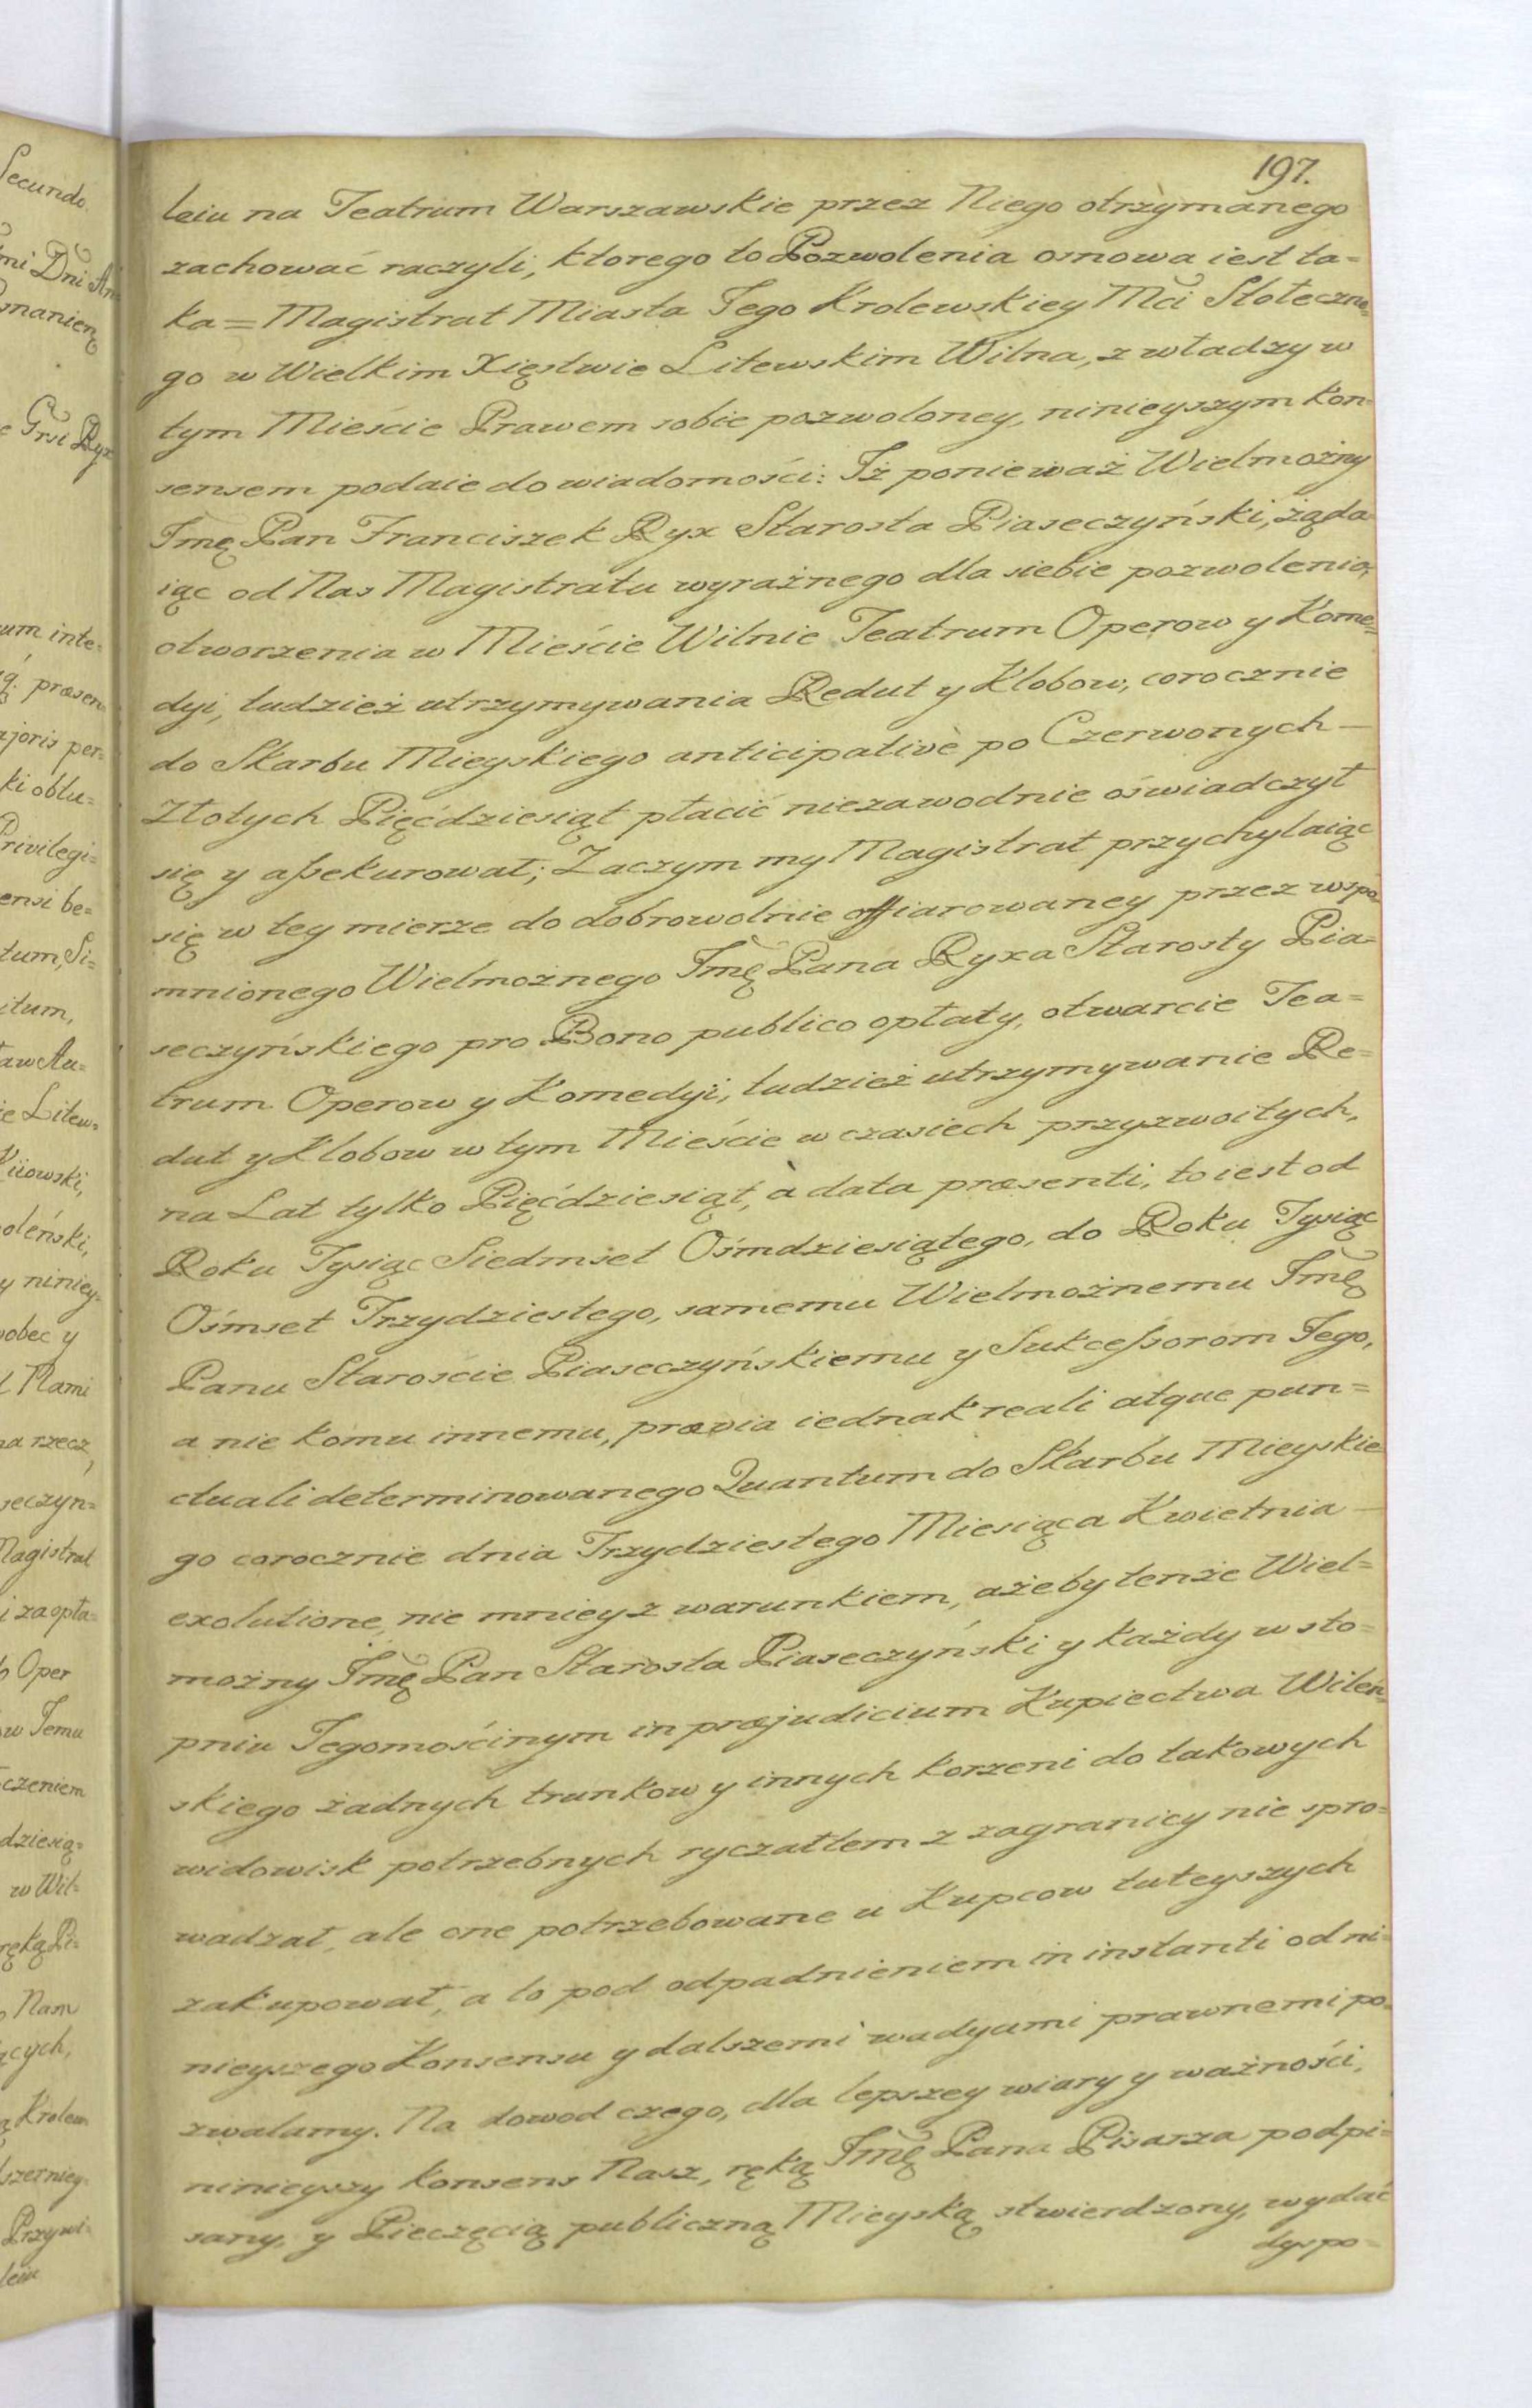 197.
leiu na Teatrum Warszawskie przez Niego otrzymanego
zachować raczyli, ktorego to Pozwolenia osnowa iest ta=
ka = Magistrat Miasta Jego Krolewskiey Mći Stołeczne=
go w Wielkim Xięstwie Litewskim Wilna, z władzy w
tym Mieście Prawem sobie pozwoloney, ninieyszym Kon=
sensem podaie do wiadomości: Iż ponieważ Wielmożny
Jmę Pan Franciszek Ryx Starosta Piaseczyński, żąda
iąc od Nas Magistratu wyraźnego dla siebie pozwolenia,
otworzenia w Mieście Wilnie Teatrum Operow y Kome=
dyi, tudzież utrzymywania Redut y Klobow, corocznie
do Skarbu Mieyskiego anticipativè po Czerwonych —
Złotych Pięćdziesiąt płacić niezawodnie oświadczył
się y aſsekurował; Zaczym my Magistrat przychylaiąc
się w tey mierze do dobrowolnie offiarowaney przez wspo=
mnionego Wielmożnego Jmę Pana Ryxa Starosty Pia=
seczyńskiego pro Bono publico opłaty, otwarcie Tea=
trum Operow y Komedyi, tudzież utrzymywanie Re=
dut y Klobow w tym Mieście w czasiech przyzwoitych,
na Lat tylko Pięćdziesiąt, à data præsenti, to iest od
Roku Tysiąc Siedmset Ośmdziesiątego, do Roku Tysiąc
Ośmset Trzydziestego, samemu Wielmożnemu Jmę
Panu Staroście Piaseczyńskiemu y Sukceſsorom Jego,
a nie komu innemu, prævia iednak reali atque pun=
ctuali determinowanego Quantum do Skarbu Mieyskie
go corocznie dnia Trzydziestego Miesiąca Kwietnia —
exolutione, nie mniey z warunkiem, ażeby tenże Wiel=
możny Jmę Pan Starosta Piaseczyński y każdy w sto=
pniu Jegomościnym in præjudicium Kupiectwa Wileń=
skiego żadnych trunkow y innych korzeni do takowych
widowisk potrzebnych ryczałtem z zagranicy nie spro=
wadzał, ale one potrzebowane u Kupcow tuteyszych
zakupował, a to pod odpadnieniem in instanti od ni=
nieyszego Konsensu y dalszemi wadyami prawnemi po=
zwalamy. Na dowod czego, dla lepszey wiary y ważności,
ninieyszy Konsens Nasz, ręką Jmę Pana Pisarza podpi=
sany, y Pieczęcią publiczną Mieyską stwierdzony, wydać
dyspo=